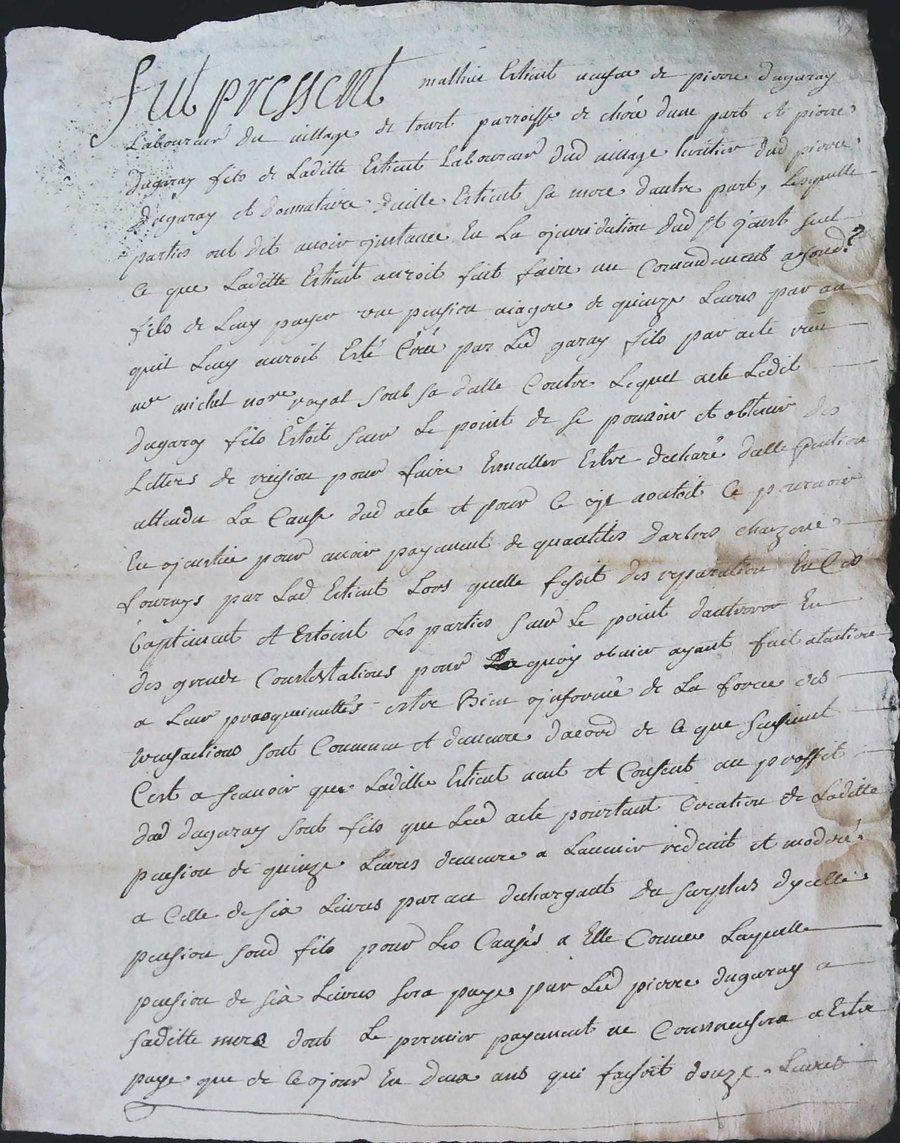 fut pressent mathive Estieut veufve de pierre dugaray
Laboureur du village de tourt parroisse de chóre dune part et pierre
dugaray fils de Laditte Estieut Laboureur dud village heritier dud pierre
dugaray et donnataire daille Estieut sa mere dautre part, Lesquelle
parties ont dit avoir instance En La jurisdiction dud st
ce que Laditte Estieut auroit fait faire un Comandement asond
fils de Luy payer une pension viagere de quinze Livres par an
quil Luy auroit Esté Créé par Led garay fils par acte
me michel nore royal soub sa datte Contre Lequel acte Ledit
dugaray fils Estoit sur Le point de se pourvoir et obtenir des
Letters de rision pour faire Ennaller Estre dacharé dalle pention
attendu La Cause dud acte et pour Ce
En justice pour avoir payement de quantités darbers
fournys par Lad Estieut Lors quelle fesoit des reparations En Ces
Baptiment et Estoint Les parties sur Le point dantrer En
des grende Contestations pour a quoy obvier ayant fait
a Leur estre Bien informé de La force des
transactions sont Convenu et demure dacord de Ce que sensieut
Cest a scauoir que Laditte Estieut veut et Consent au proffit
dud dugaray sont fils que Led acte pourtant Creation de Laditte
pension de quinze Livres demure a Lavenir reduit et modéré
a Celle de six Livres par an dechargant du surplus dycelle
pension sond fils pour Les Causes a Elle Connue Laquelle
pension de six Livres sera paye par Led pierre dugaray a
saditte mere dont Le premier payement ne Commensera a Estre
paye que de Ce jour En deux ans qui faisoit douze Livres